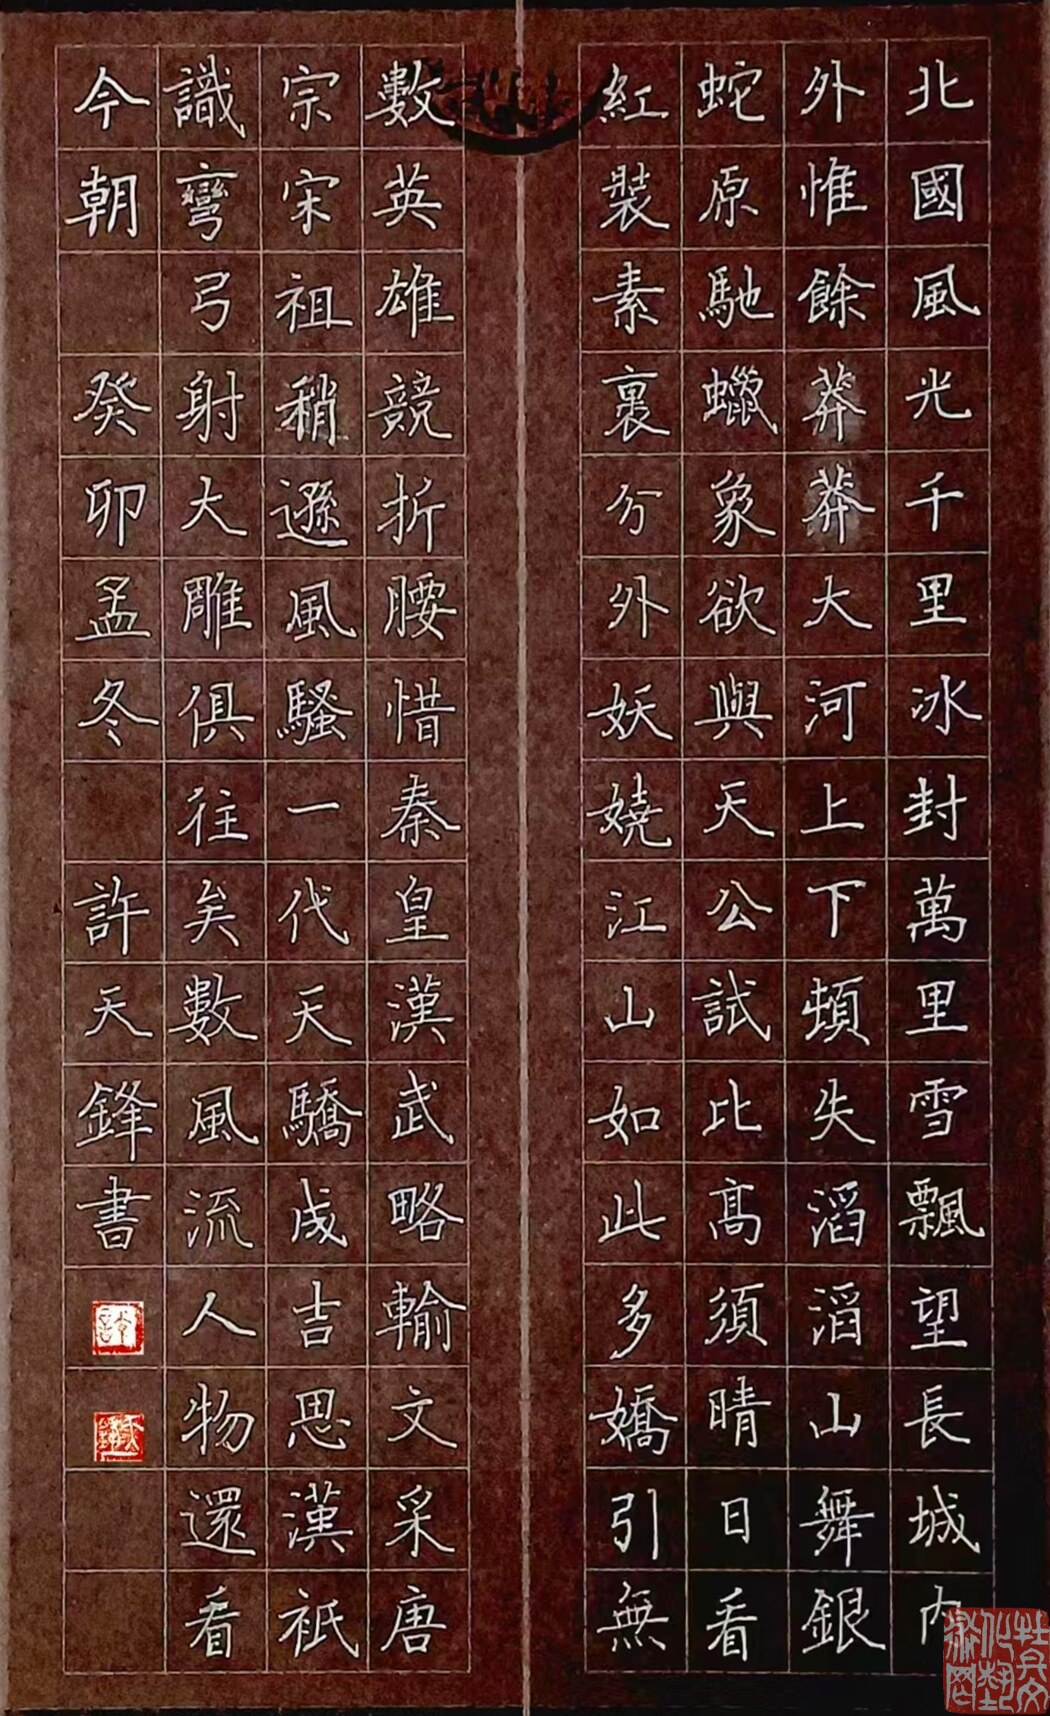 北國風光千里冰封萬里雪飄望長城內
外惟餘莽莽大河上下頓失滔滔山舞銀
蛇原馳蠟象欲與天公試比高須晴日看
紅裝素裹分外妖嬈江山如此多嬌引無
數英雄競折腰惜秦皇漢武略輸文采唐
宗宋祖稍遜風騷一代天驕成吉思漢祇
識彎弓射大雕俱往矣數風流人物還看
今朝 癸卯孟冬 許天鋒書
許
天鋒